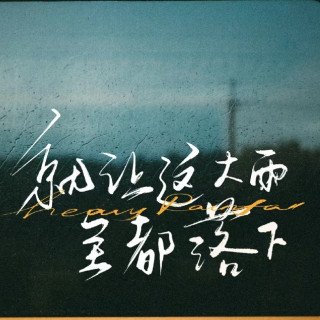 就让这大雨
Heavy Rainfall
全都落下